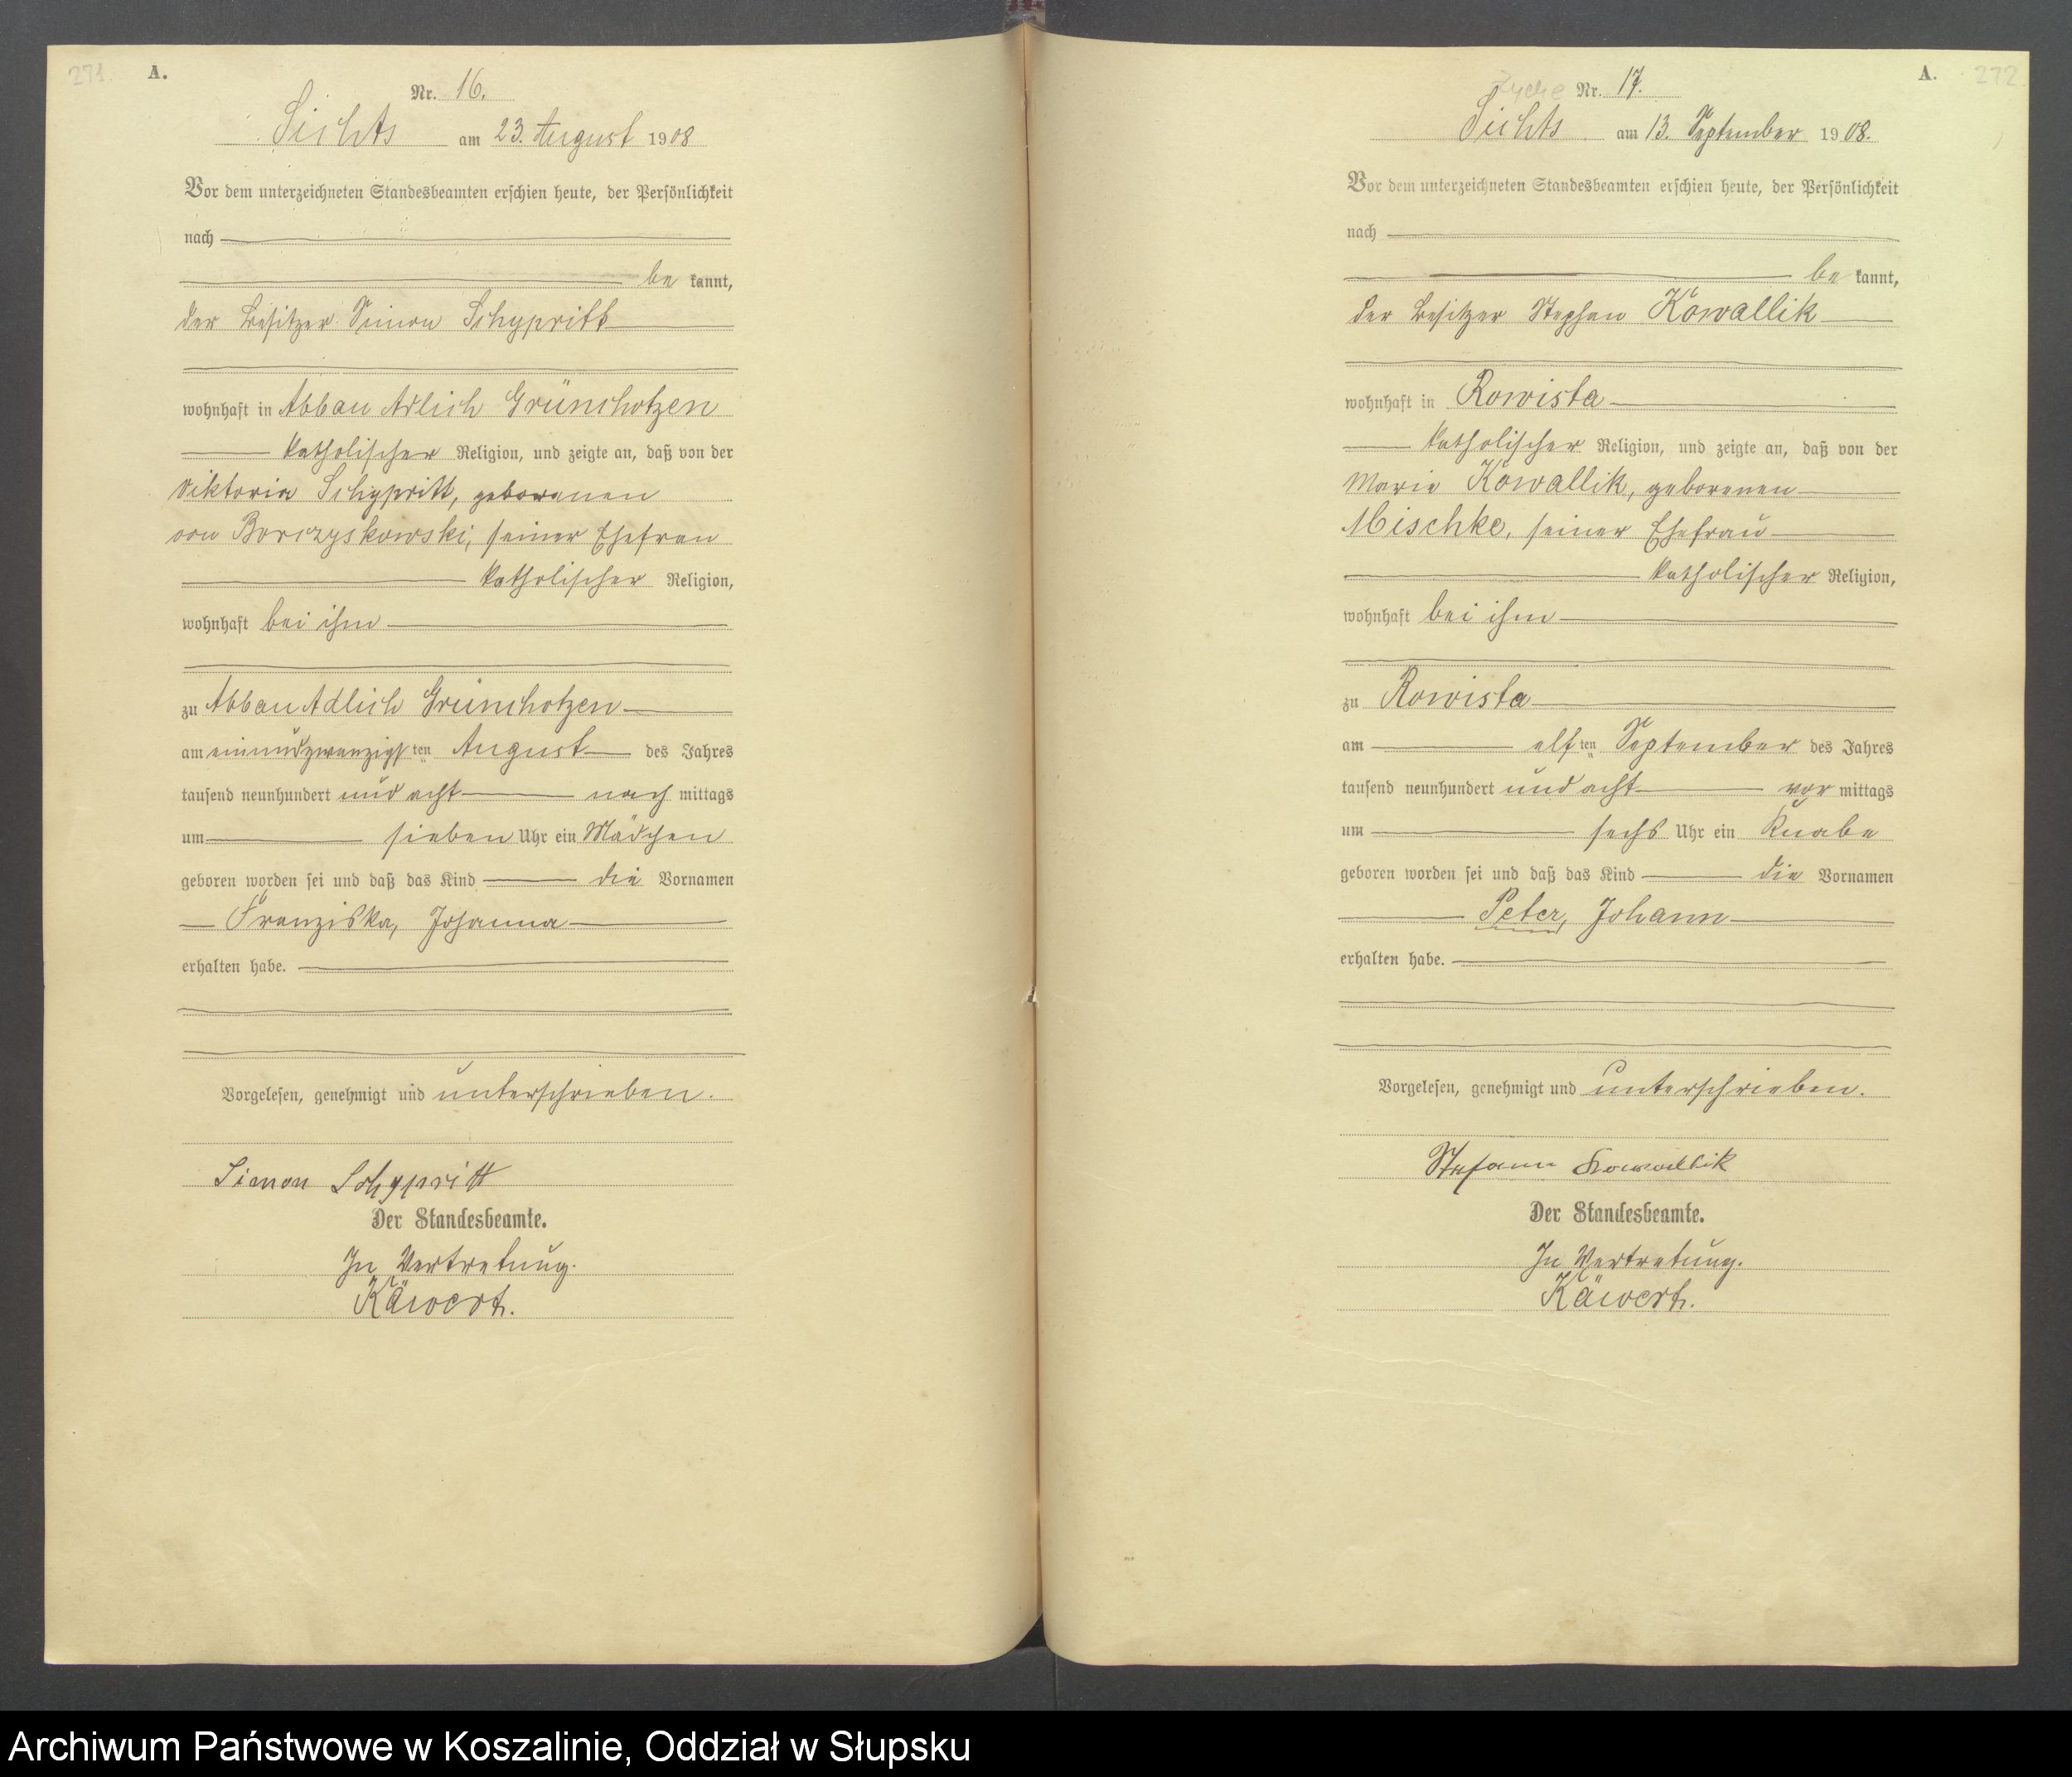 271.
A.
Nr. 16.
Sichts am 23. August 1908
Vor dem unterzeichneten Standesbeamten erschien heute, der Persönlichkeit
nach
be kannt,
der Besitzer Simon Schypritt
wohnhaft in Abbau Adlich Grünchotzen
katholischer Religion, und zeigte an, daß von der
Viktoria Schypritt, geborenen
von Borczyskowski, seiner Ehefrau
katholischer Religion,
wohnhaft bei ihm
zu Abbau Adlich Grünchotzen
am einundzwanzigsten August des Jahres
tausend neunhundert und acht nach mittags
um sieben Uhr ein Mädchen
geboren worden sei und daß das Kind die Vornamen
Franziska, Johanna
erhalten habe.
Vorgelesen, genehmigt und unterschrieben.
Simon Schypritt
Der Standesbeamte.
In Vertretung.
Käwert.
A. 272
Zyche Nr. 17.
Sichts am 13. September 1908.
Vor dem unterzeichneten Standesbeamten erschien heute, der Persönlichkeit
nach
be kannt,
der Besitzer Stephan Kowallik
wohnhaft in Rowista
katholischer Religion, und zeigte an, daß von der
Marie Kowallik, geborenen
Mischke, seiner Ehefrau
katholischer Religion,
wohnhaft bei ihm
zu Rowista
am elften September des Jahres
tausend neunhundert und acht vor mittags
um sechs Uhr ein Knabe
geboren worden sei und daß das Kind die Vornamen
Peter, Johann
erhalten habe.
Vorgelesen, genehmigt und unterschrieben.
Stefann Kowallik
Der Standesbeamte.
In Vertretung.
Käwert.
Archiwum Państwowe w Koszalinie, Oddział w Słupsku